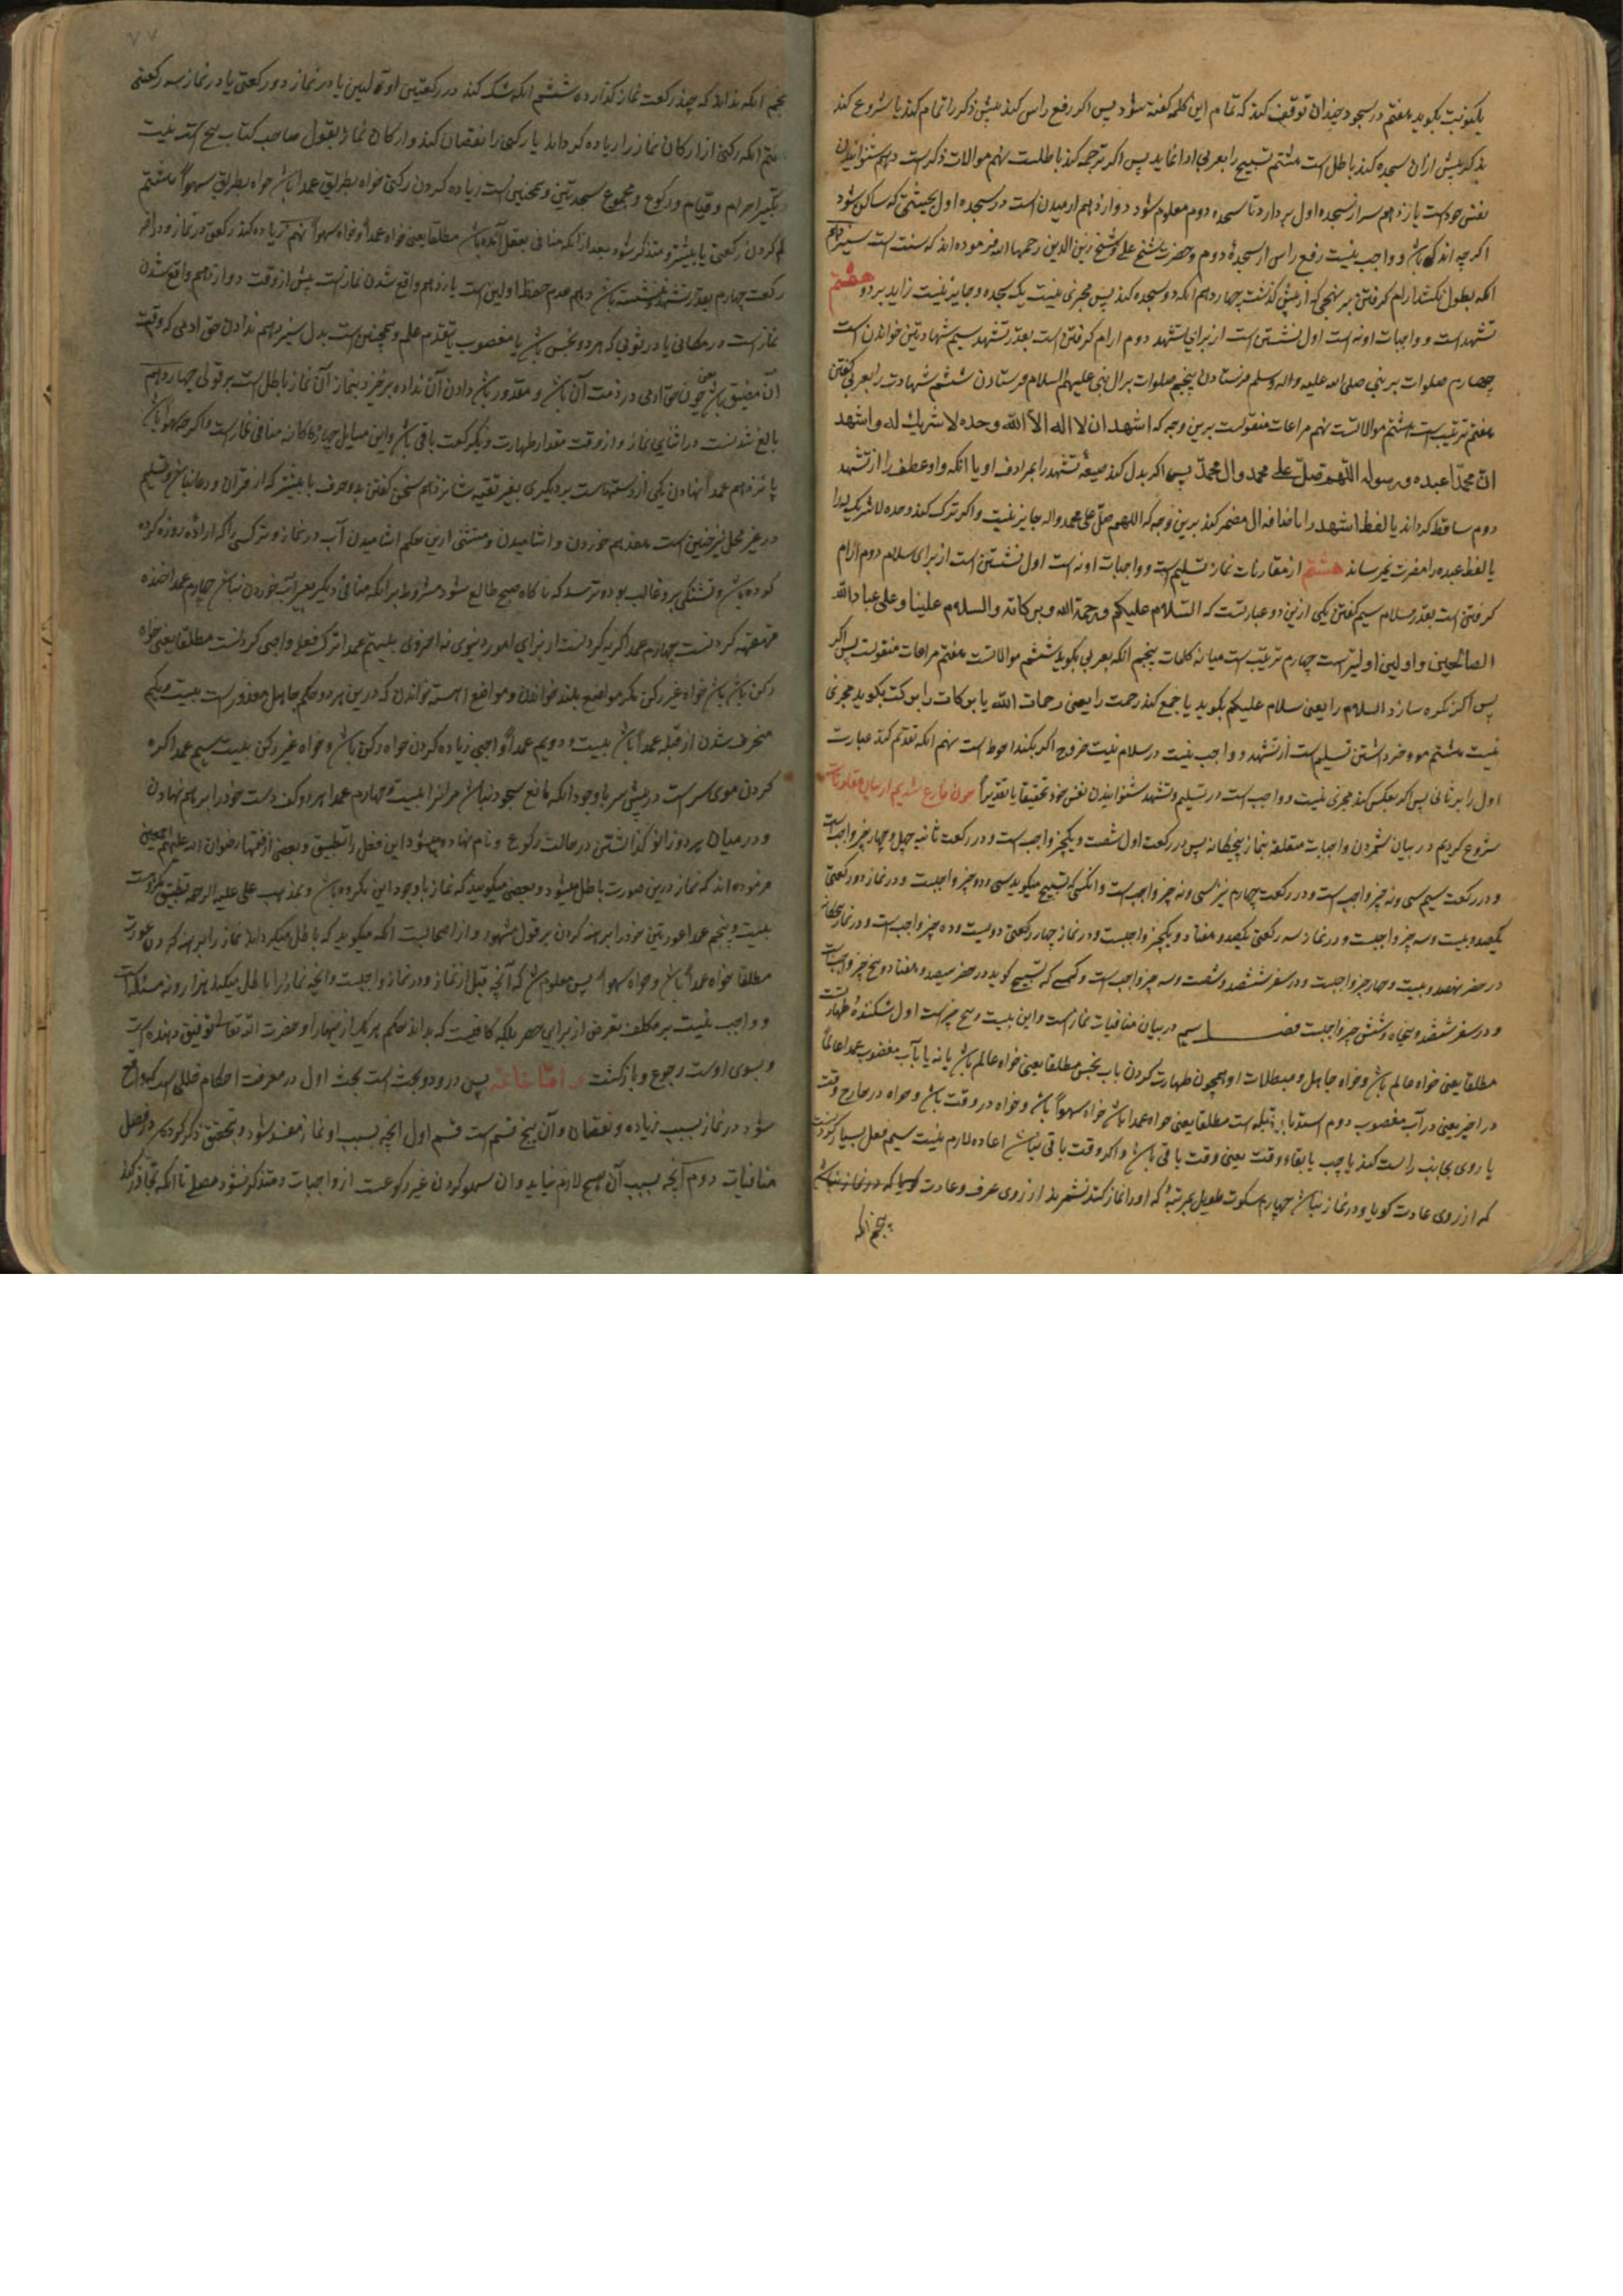 یکنوبت بگوید هفتم در سجود چندان توقف کند که تمام این کلمه گفته شود پس اگر رفع راس کند پیش ذکر را تمام کند یا شروع کند
بذکر پیش ازان سجده کند باطل است هشتم تسبیح را بعربی ادا نماید پس اگر ترجمه کند باطلست نهم موالات ذکر است دهم شنوانیدن
نفس خود است یازدهم سر از سجده اول بردارد تا سجده دوم معلوم شود دوازدهم ارمیدن است در سجده اول بحیثیتی که ساکن شود
اگرچه اندک باشد و واجب نیست رفع راس از سجدهٔ دوم و حضرت شیخ علی و شیخ زین الدین رحمهما الله فرموده اند که سنت است سیزدهم
انکه بطول نکشد ارام گرفتن بر نهجی که از پیش گذشت چهاردهم انکه دو سجده کند پس مجزی نیست یک سجده و جایز نیست زاید بر دو هفتم
تشهد است و واجبات او نه است اول نشستن است از برای تشهد دوم ارام گرفتن است بقدر تشهد سیم شهادتین خواندن است
چهارم صلوات بر نبی صلی الله علیه واله وسلم فرستادن پنجم صلوات بر ال نبی علیهم السلام فرستادن ششم شهادت را بعربی گفتن
هفتم ترتیب است هشتم موالاتست نهم مراعات منقولست برین وجه که اشهد ان لا اله الا الله وحده لا شریك له و اشهد
ان محمدا عبده ورسوله اللهم صل علی محمد وال محمد پس اگر بدل کند صیغهٔ تشهد را بمرادف او یا انکه واو عطف را از تشهد
دوم ساقط گرداند یا لفظ اشهد را باضافه ال مضمر کند برین وجه که اللهم صل علی محمد واله جایز نیست و اگر ترک کند وحده لا شریک له را
یا لفظ عبده را مضرت نمیرساند هشتم از مقارنات نماز تسلیم است و واجبات او نه است اول نشستن است از برای سلام دوم ارام
گرفتن است بقدر سلام سیم گفتن یکی ازین دو عبارتست که السلام علیکم ورحمة الله وبرکاته والسلام علینا وعلی عباد الله
الصالحین و اولین اولیتر است چهارم ترتیب است میانه کلمات پنجم انکه بعربی بگوید ششم موالاتست هفتم مراعات منقولست پس اگر
پس اگر نکره سازد السلام را یعنی سلام علیکم بگوید یا جمع کند رحمت را یعنی رحمات الله یا برکات را برکت بگوید مجزی
نیست هشتم موخر داشتن تسلیم است از تشهد و واجب نیست در سلام نیت خروج اگر بکند احوط است نهم انکه تقدیم کند عبارت
اول را بر ثانی پس اگر بعکس کند مجزی نیست و واجب است در تسلیم و تشهد شنوانیدن نفس خود تحقیقا یا تقدیرا چون فارغ شدیم از بیان مقارنات
شروع کردیم در بیان شمردن واجبات متعلقه بنماز پنجگانه پس در رکعت اول شصت و یکچیز واجب است و در رکعت ثانیه چهل و چهار چیز واجبست
و در رکعت سیم سی و نه چیز واجب است و در رکعت چهارم نیز سی و نه چیز واجب است و انکسی که تسبیح میگوید سی و دو چیز واجبست و در نماز دو رکعتی
یکصد و بیست و سه چیز واجبست و در نماز سه رکعتی یکصد و هفتاد و یکچیز واجبست و در نماز چهار رکعتی دویست و ده چیز واجب است و در نماز پنجگانه
در حضر نهصد و بیست و چهار چیز واجبست و در سفر ششصد و شصت و سه چیز واجب است و کسی که تسبیح گوید در حضر سیصد و هفتاد و پنج چیز واجب است
و در سفر ششصد و پنجاه و شش چیز واجبست فصل سیم در بیان منافیات نماز است و این بیست و پنج چیز است اول شکنندهٔ طهارت
مطلقا یعنی خواه عالم باشد و خواه جاهل و مبطلات او همچون طهارت کردن باب نجس مطلقا یعنی خواه عالم باشد یا نه یا بآب مغصوب عمدا عالماً
در اخیر یعنی در آب مغصوب دوم استدبار قبله است مطلقا یعنی خواه عمدا باشد خواه سهواً باشد و خواه در وقت باشد و خواه در خارج وقت
یا روی بجانب راست کند یا چپ یا بقاء وقت یعنی وقت باقی باشد و اگر وقت باقی نباشد اعاده لازم نیست سیم فعل بسیار کردنست
که از روی عادت گویا او در نماز نباشد چهارم سکوت طویل بمرتبهٔ که او را نماز کننده نشمرند از روی عرف و عادت گویا که در نماز نباشد
پنجم انکه
۷۷
پنجم انکه نداند که چند رکعت نماز گذارده ششم انکه شک کند در رکعتین اولیین یا در نماز دو رکعتی یا در نماز سه رکعتی
هفتم انکه رکنی از ارکان نماز را زیاده گرداند یا رکنی را نقصان کند و ارکان نماز بقول صاحب کتاب پنج است نیت
تکبیر احرام و قیام و رکوع و مجموع سجدتین و همچنین است زیاده کردن رکنی خواه بطریق عمدا باشد خواه بطریق سهواً هشتم
کم کردن رکعتی یا بیشتر و متذکر شود بعد از انکه منافی بفعل آمده باشد مطلقا یعنی خواه عمداً و خواه سهواً نهم زیاده کند رکعتی در نماز و در اخر
رکعت چهارم بقدر تشهد ننشسته باشد دهم عدم حفظ اولیین است یازدهم واقع شدن نماز است پیش از وقت دوازدهم واقع شدن
نماز است در مکانی یا در ثوبی که هر دو نجس باشد یا مغصوب با تقدم علم و همچنین است بدن سیزدهم ندادن حق ادمی که وقت
آن مضیق باشد یعنی چون حق آدمی در ذمت آن باشد و مقدور باشد دادن آن نداده برخیزد بنماز آن نماز باطل است بر قولی چهاردهم
بالغ شدنست در اثنای نماز و از وقت مقدار طهارت و یکرکعت باقی باشد و این مسایل چهارده گانه منافی نماز است و اگر چه سهوا باشد
پانزدهم عمداً نهادن یکی از دستهاست بر دیگری بغیر تقیه شانزدهم سخن گفتن بدو حرف یا بیشتر که از قران و دعا نباشد و تسلیم
در غیر محل نیز چنین است هفدهم خوردن و اشامیدن و مستثنی ازین حکم اشامیدن آب در نماز وتر کسی را که ارادهٔ روزه کرده
کرده باشد و تشنگی برو غالب بوده و ترسد که ناگاه صبح طالع شود مشروط بر انکه منافی دیگر بغیر آب خوردن نباشد عمدا خنده
قهقهه کردنست عمدا گریه کردنست از برای امور دنیوی نه اخروی بیستم عمدا ترک فعل واجبی کردنست مطلقا یعنی خواه
رکن باشد خواه غیر رکن مگر مواضع بلند خواندن و مواضع اهسته خواندن که درین هر دو حکم جاهل معذور است بیست و یکم
منحرف شدن از قبله عمداً باشد بیست و دویم عمداً واجبی زیاده کردن خواه رکن باشد و خواه غیر رکن بیست سیم عمدا گره
کردن موی سر است در پیش سر با وجود انکه مانع سجود نباشد مر انرا بیست و چهارم عمدا هر دو کف دست خود را بر هم نهادن
و در میان هر دو زانو گذاشتن در حالت رکوع و نام نهاده میشود این فعل را تطبیق و بعضی از فقها رضوان الله علیهم اجمعین
فرموده اند که نماز درین صورت باطل میشود و بعضی میگویند که نماز با وجود این مکروه باشد و مذهب علی علیه الرحمه تطبیق مکروهست
بیست و پنجم عمدا عورتین خود را برهنه کردن بر قول مشهور و از اصحابیست انکه میگوید که باطل میگرداند نماز را برهنه کردن عورت
مطلقا خواه عمداً باشد و خواه سهواً پس معلوم شد که آنچه قبل از نماز و در نماز واجبست و انچه نماز را باطل میکند هزار و نه مسئله است
و واجب نیست بر مکلف تعرض از برای حصر بلکه کافیست که بداند حکم هر یک از اینها را و حضرت الله تعالی توفیق دهنده است
و بسوی اوست رجوع و بازگشت و اما خاتمه پس درو دو بحث است بحث اول در معرفت احکام خللی است که واقع
شود در نماز بسبب زیاده و نقصان و آن پنج قسم است قسم اول انچه بسبب او نماز مفسد شود و بتحقیق ذکر کرده شد در فصل
منافیات دوم آنچه بسبب آن هیچ لازم نیاید و ان سهو کردن غیر رکوعست از واجبات و متذکر نشود مصلی تا انکه تجاوز کند